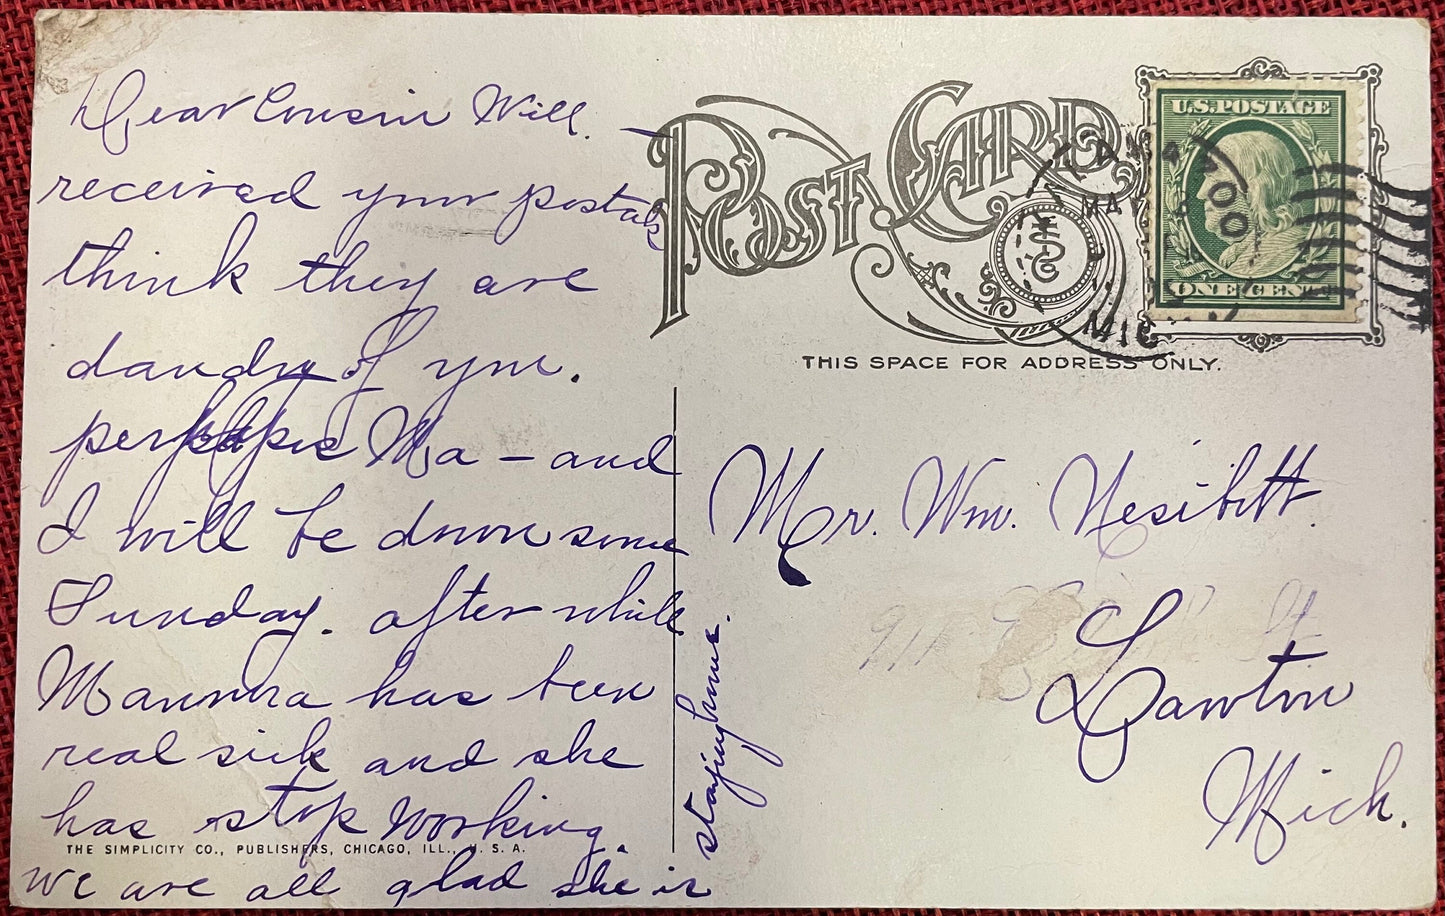 Dear Cousin Will. —
received your postals
think they are
dandy of you.
perhaps Ma – and
I will be down some
Sunday. after while
Mamma has been
real sick and she
has stop working.
we are all glad she is
staying home.
THE SIMPLICITY CO., PUBLISHERS, CHICAGO, ILL., U. S. A.
POST CARD
THIS SPACE FOR ADDRESS ONLY.
U.S. POSTAGE
ONE CENT
KALAMAZOO
MAY
MICH
Mr. Wm. Nesibitt.
Lawton
Mich.